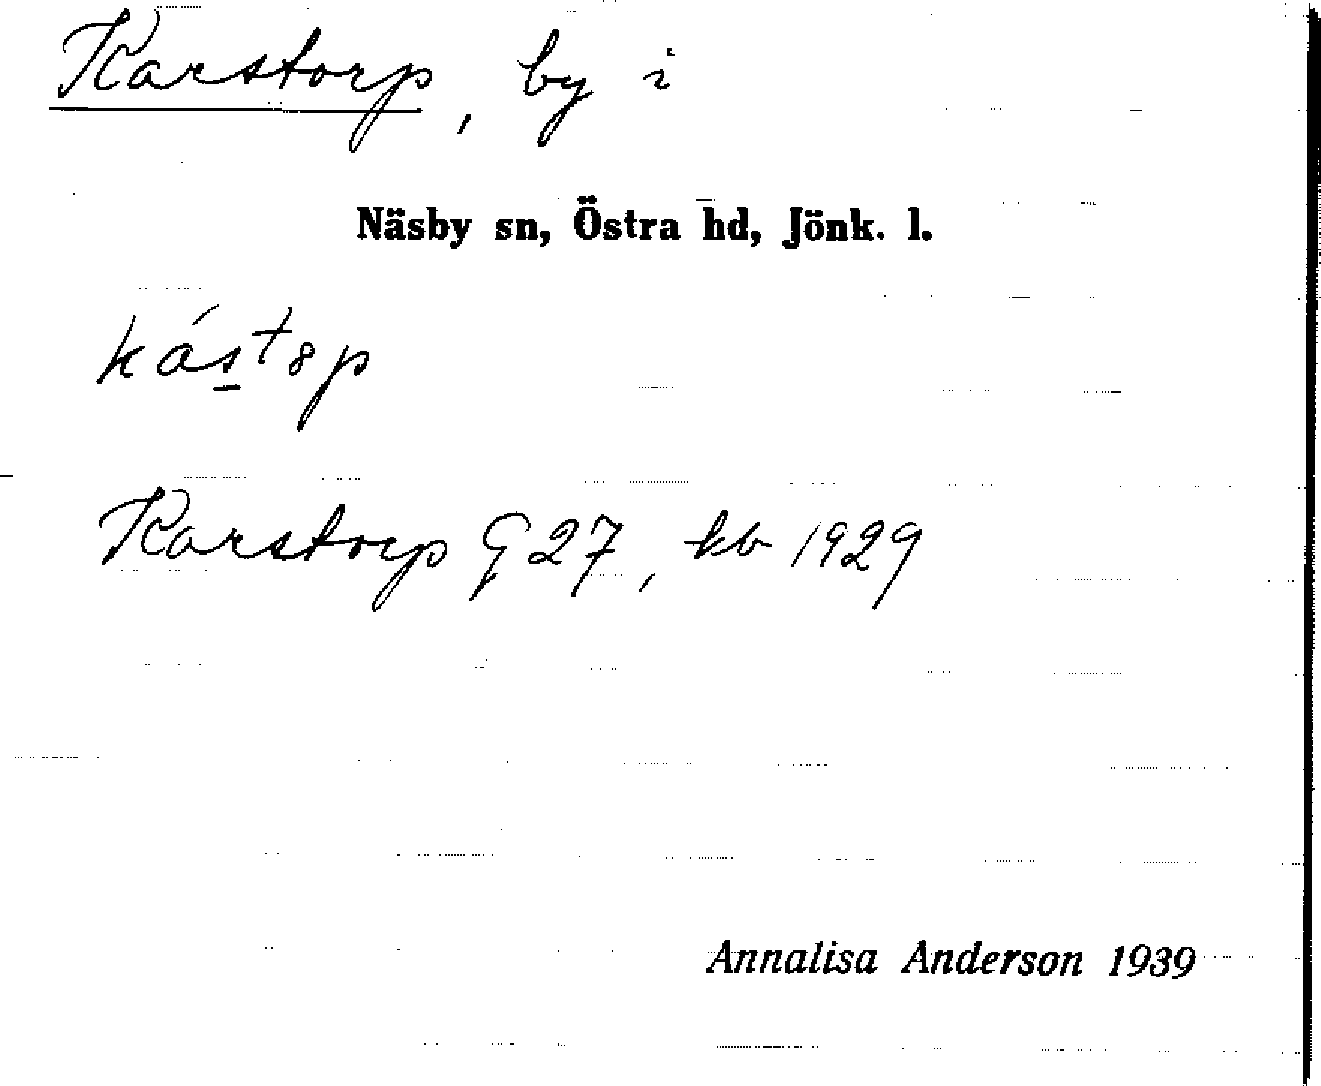 Karstorp, by i
Näsby sn, Östra hd, Jönk. l.
kástep
Karstorp G 27, kb 1929
Annalisa Anderson 1939